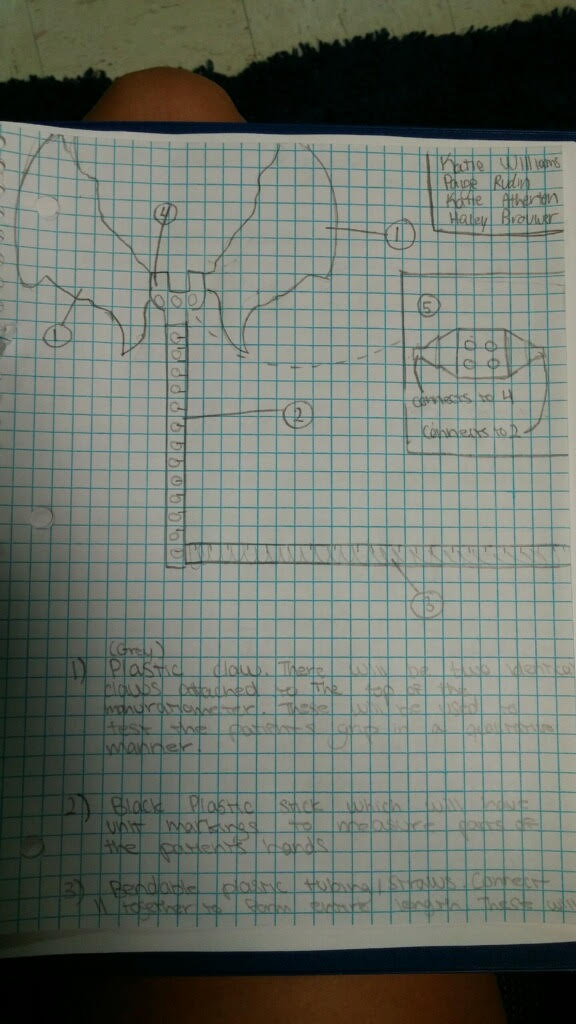 Katie Williams
Paige Rudin
Katie Atherton
Haley Brouwer
4
1
5
1
connects to 4
connects to 2
2
3
(Grey)
1) Plastic claw. There will be two identical
claws attached to the top of the
These will be used to
test the patients grip in a
manner.
2) Black Plastic stick which will have
unit markings to measure parts of
the patients hands
3) Bendable plastic tubing/straws. Connect
11 together to form entire length. These will